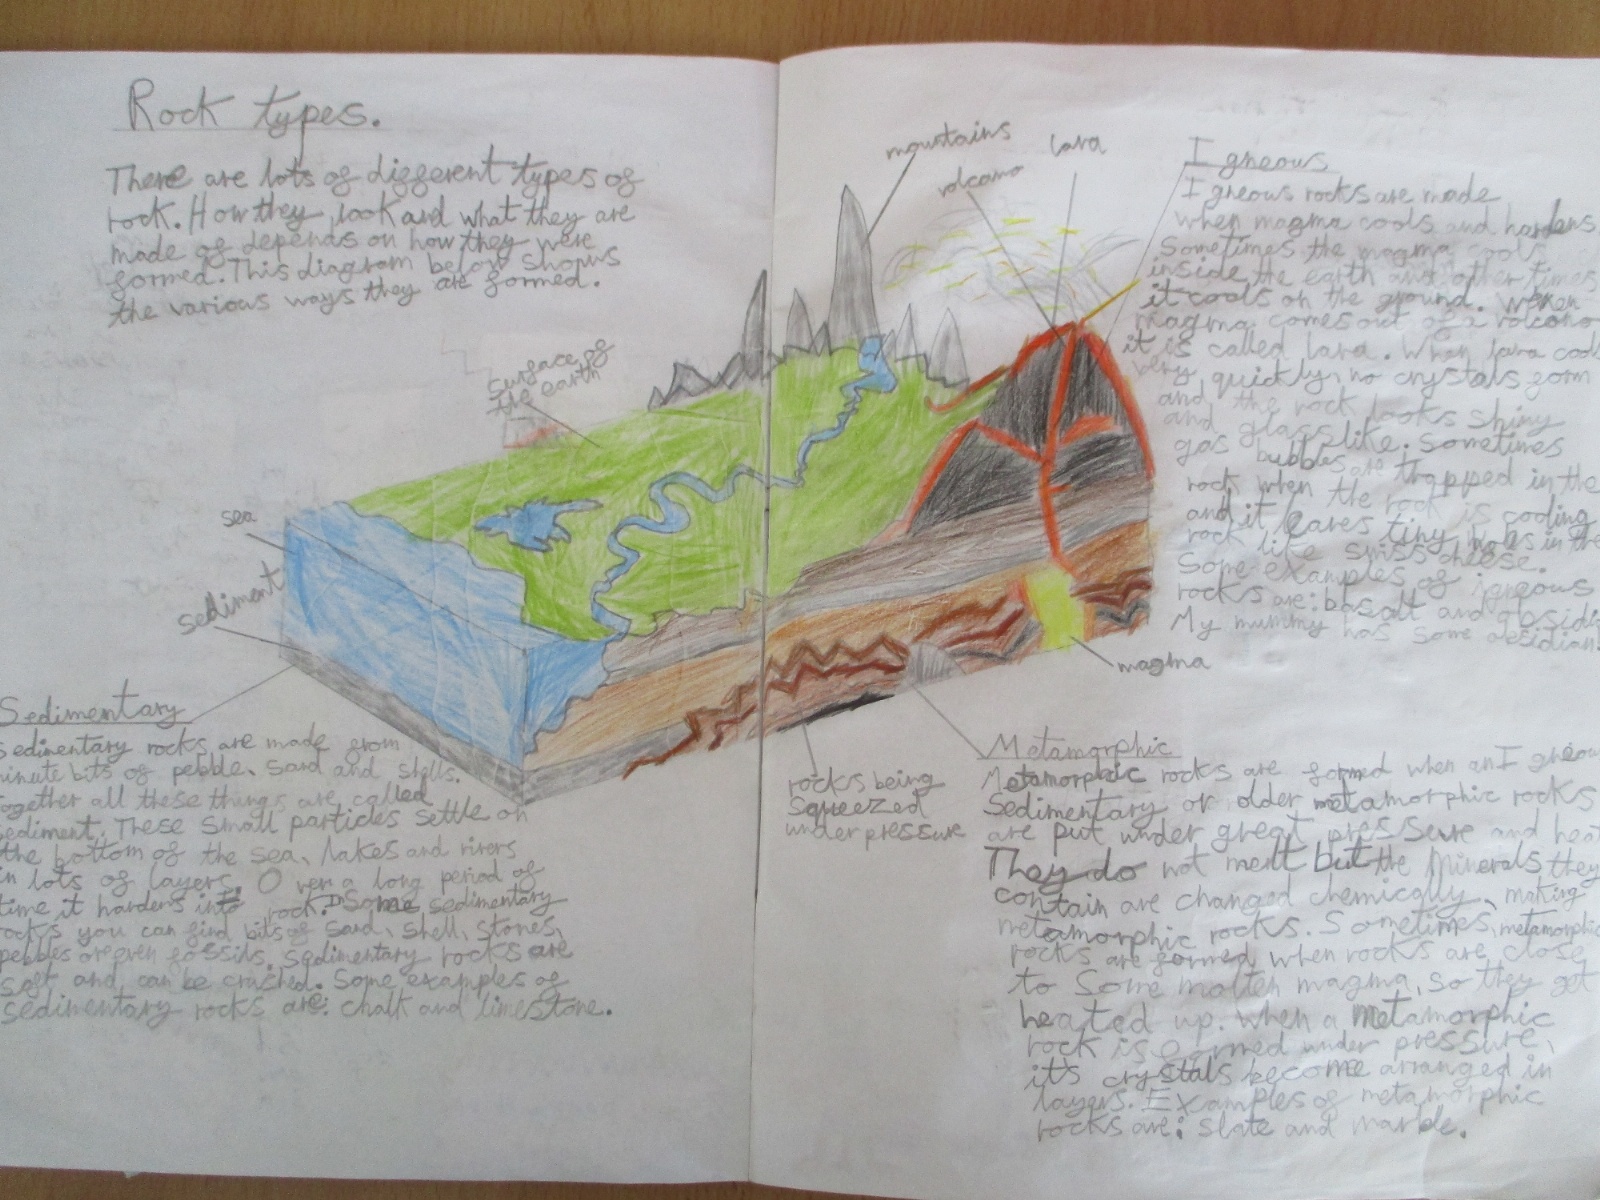 Rock types.
There are lots of different types of
rock. How they look and what they are
made of depends on how they were
formed. This diagram below shows
the various ways they are formed.
surface of
the earth
sea
sediment
Sedimentary
Sedimentary rocks are made from
minute bits of pebble, sand and shells.
Together all these things are called
sediment. These small particles settle on
the bottom of the sea, lakes and rivers
in lots of layers. Over a long period of
time it hardens into rock. In some sedimentary
rocks you can find bits of sand, shell, stones,
pebbles or even fossils. Sedimentary rocks are
soft and can be crushed. Some examples of
sedimentary rocks are: chalk and limestone.
mountains
volcano
lava
magma
rocks being
squeezed
under pressure
Igneous
Igneous rocks are made
when magma cools and hardens
Sometimes the magma cools
inside the earth and other times
it cools on the ground. When
magma comes out of a volcano
it is called lava. When lava cools
very quickly, no crystals form
and the rock looks shiny
and glass like. Sometimes
gas bubbles are trapped in the
rock when the rock is cooling
and it leaves tiny holes in the
rock like swiss cheese.
Some examples of igneous
rocks are: basalt and obsidi
My mummy has some obsidian!
Metamorphic
Metamorphic rocks are formed when an Igneous
Sedimentary or older metamorphic rocks
are put under great pressure and heat
They do not melt but the minerals they
contain are changed chemically, making
metamorphic rocks. Sometimes, metamorphic
rocks are formed when rocks are close
to some molten magma, so they get
heated up. When a metamorphic
rock is formed under pressure,
it's crystals become arranged in
layers. Examples of metamorphic
rocks are: slate and marble.